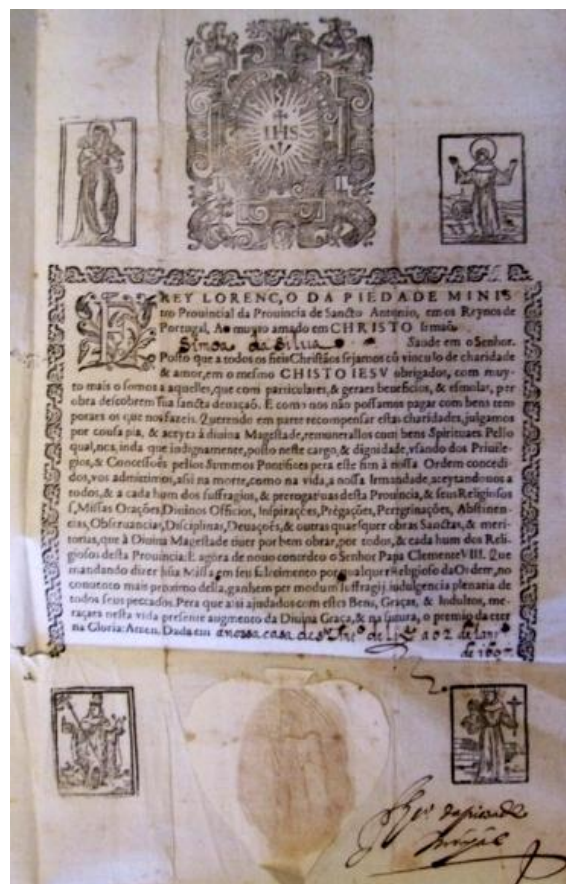 IHS
FREY LORENÇO DA PIEDADE MINIS
tro Prouincial da Prouincia de Sancto Antonio, em os Reynos de
Portugal, Ao muyto amado em CHRISTO Irmaõ
Simoa da Silua Saude em o Senhor.
Posto que a todos os fieis Christãos sejamos cõ vinculo de charidade
& amor, em o mesmo CHISTO IESV obrigados, com muy-
to mais o somos a aquelles, que com particulares, & geraes beneficios, & esmolas, per
obra descobrem sua sancta deuação. E como nos não possamos pagar com bens tem
poraes os que nos fazeis. Querendo em parte recompensar estas charidades, julgamos
por cousa pia, & aceyta à diuina Magestade, remunerallos com bens Spirituaes. Pello
qual, nos, inda que indignamente, posto neste cargo, & dignidade, vsando dos Priuile-
gios, & Concessões pellos Summos Pontifices pera este fim à nossa Ordem concedi-
dos, vos admittimos, assi na morte, como na vida, a nossa Irmandade, aceytandouos a
todos, & a cada hum dos suffragios, & prerogatiuas desta Prouincia, & seus Religiosos
s, Missas Orações, Diuinos Officios, Inspirações, Prégações, Peregrinações, Abstinen-
cias, Obseruancias, Disciplinas, Deuações, & outras quaesquer obras Sanctas, & meri-
torias, que à Diuina Magestade tiuer por bem obrar, por todos, & cada hum dos Reli-
giosos desta Prouincia. E agora de nouo concedeo o Senhor Papa Clemente VIII. Que
mandando dizer hũa Missa, em seu falecimento por qualquer Religioso da Ordem, no
conuento mais proximo della, ganhem per modum suffragij, indulgencia plenaria de
todos seus peccados. Pera que assi ajudados com estes Bens, Graças, & Indultos, me-
reçaes nesta vida presente augmento da Diuina Graça, & na futura, o premio da eter
na Gloria. Amen. Dada em a nossa casa de S. Anto de Lixa a 02 de Janro
de 1607